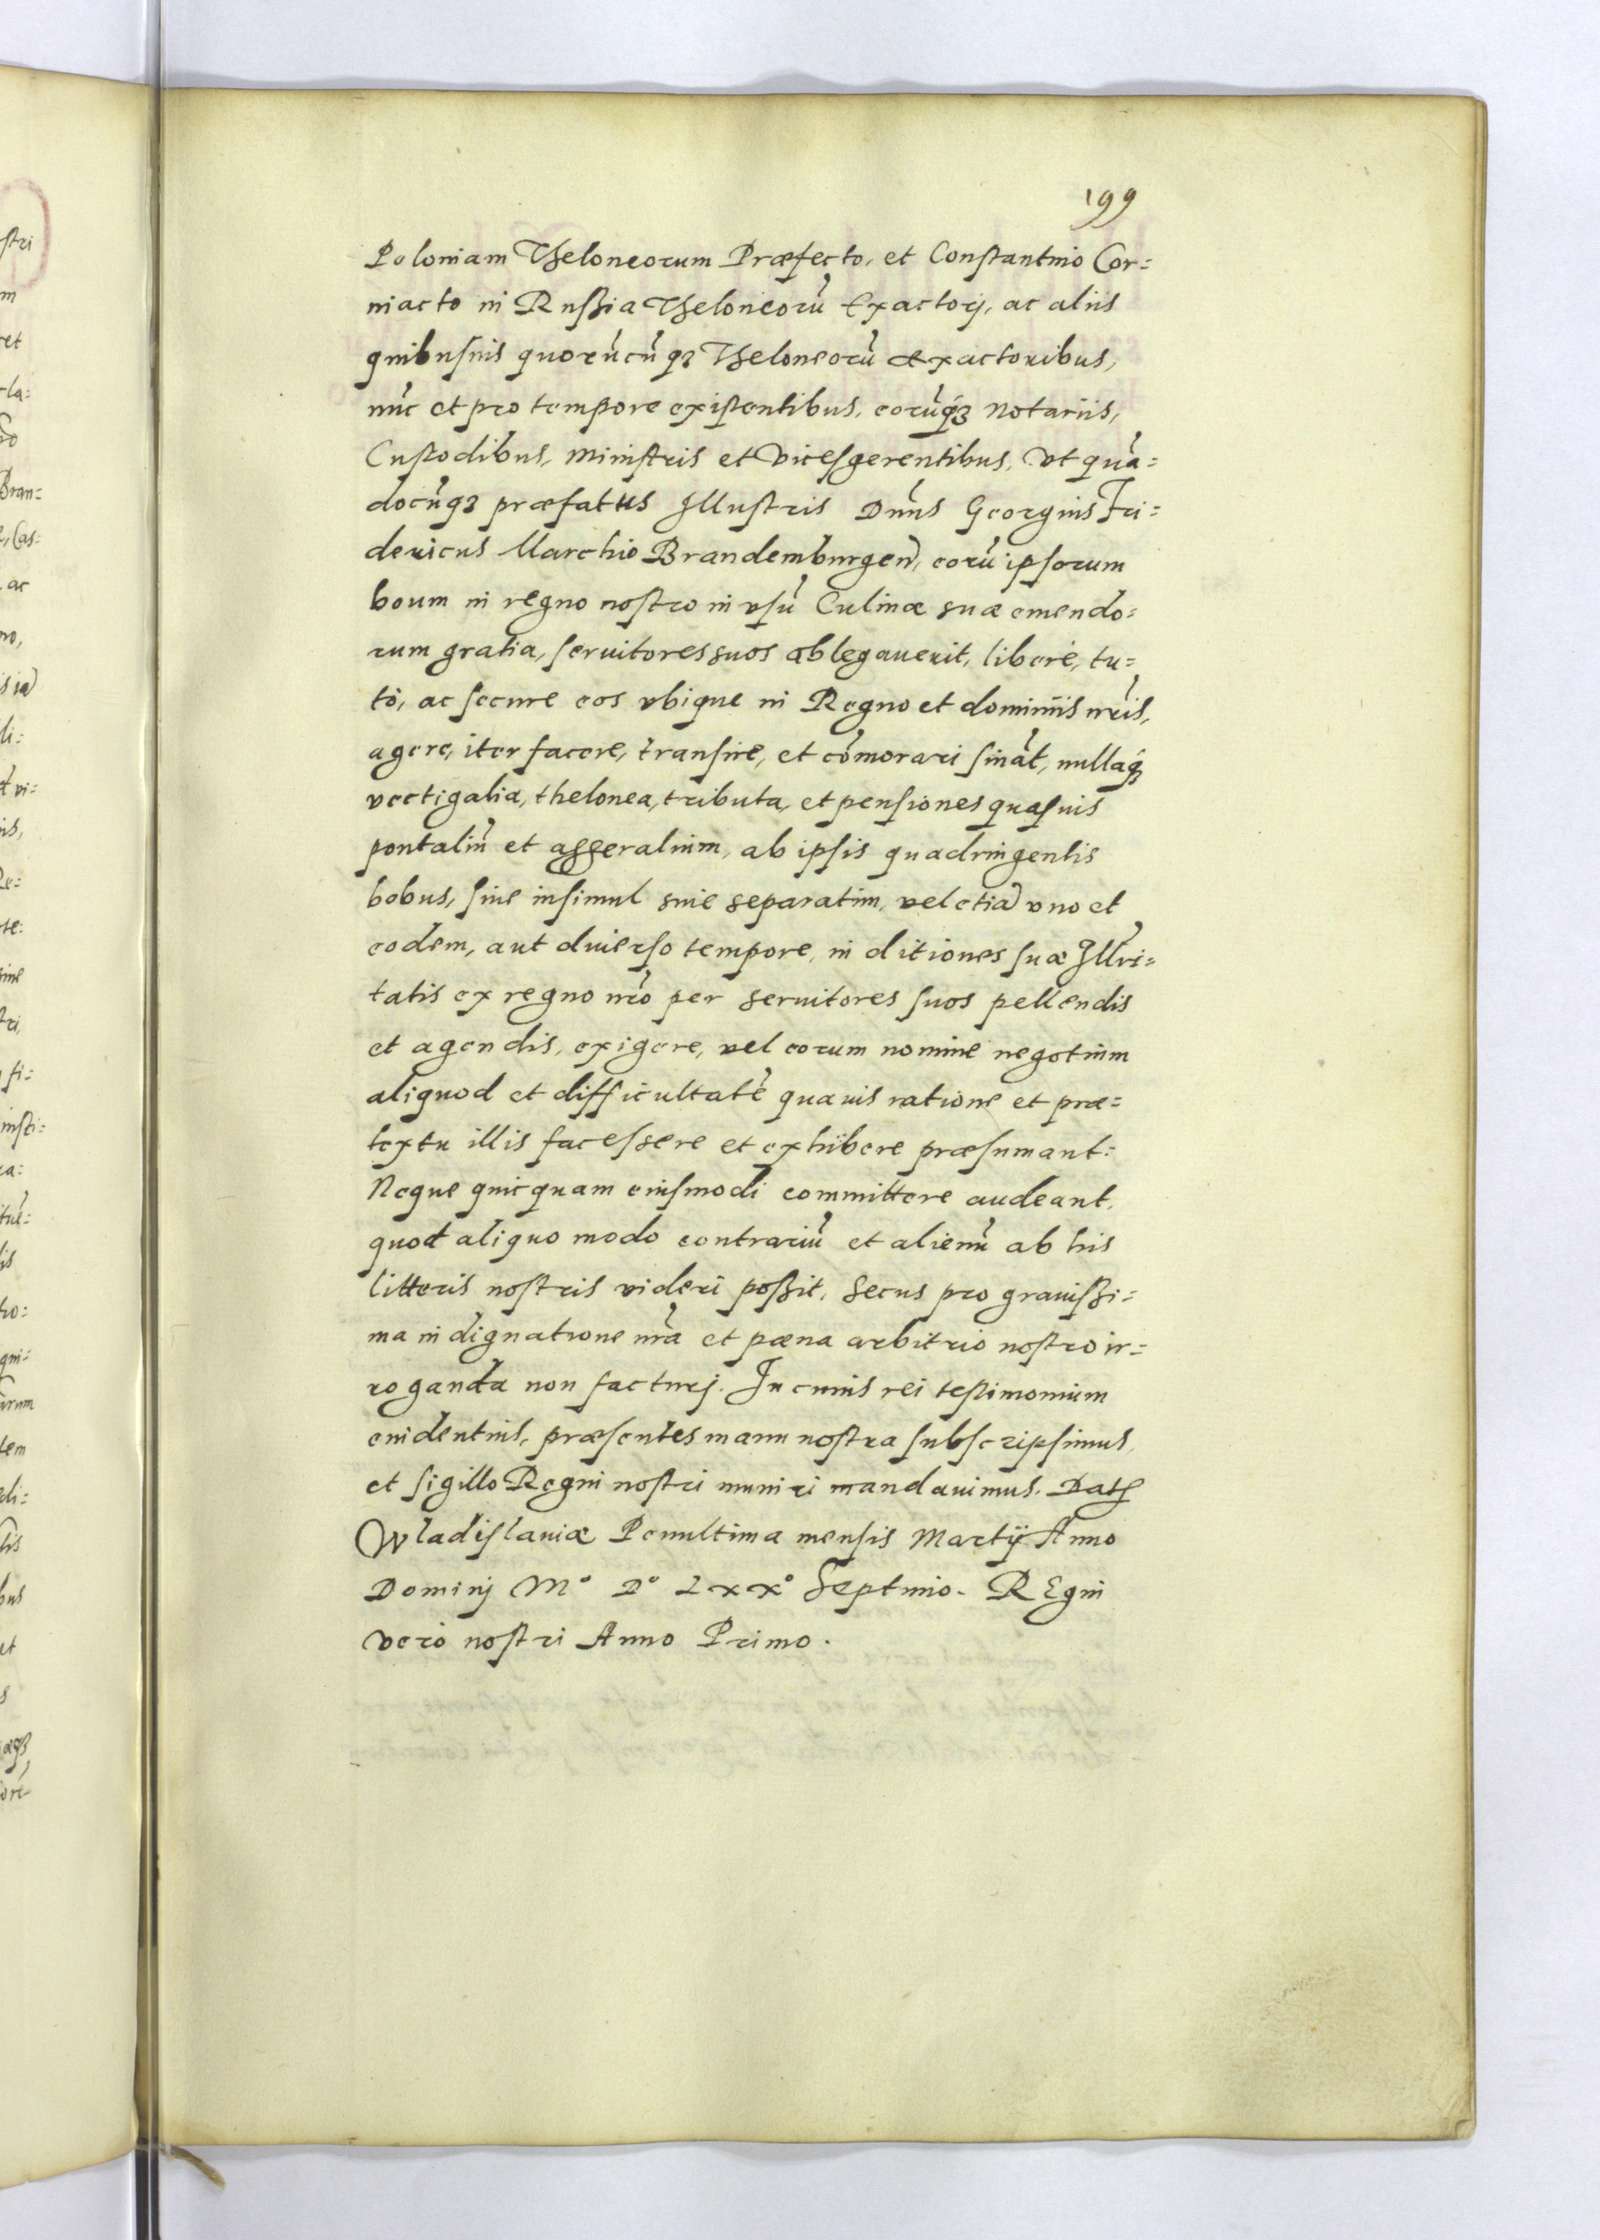 199
Poloniam Theloneorum Præfecto, et Constantino Cor=
niacto in Russia Theloneorū Exactorj, ac aliis
quibusuis quorūcūq3 Theloneorū exactoribus,
nūc et pro tempore existentibus, eorūq3 Notariis,
Custodibus, Ministris et Vicesgerentibus, Vt quā=
docūq3 præfatus Illustris Dnūs Georgius Fri=
dericus Marchio Brandemburgen, eorū ipsorum
boum in regno nostro in vsū Culinæ suæ emendo=
rum gratia, seruitores suos ablegauerit, libere, tu=
tò, ac secure eos vbique in Regno et dominiis nris,
agere, iter facere, transire, et cōmorari sināt, nullaq3
vectigalia, thelonea, tributa, et pensiones quasuis
pontaliū et aggeralium, ab ipsis quadringentis
bobus, siue insimul siue separatim, vel etiā vno et
eodem, aut diuerso tempore, in ditiones suæ Illri=
tatis ex regno nrō per seruitores suos pellendis
et agendis, exigere, vel eorum nomine negotium
aliquod et difficultatē quauis ratione et præ=
textu illis facessere et exhibere præsumant:
Neque quicquam eiusmodi committere audeant,
quod aliquo modo contrariū et alienū ab his
litteris nostris videri possit, Secus pro grauissi=
ma indignatione nrā et pæna arbitrio nostro ir=
roganda non facturj. In cuius rei testimonium
euidentius, præsentes manu nostra subscripsimus,
et sigillo Regni nostri muniri mandauimus. Dat
Wladislauiæ Penultima mensis Martij Anno
Dominj Mº Dº Lxxº Septimo. REgni
vero nostri Anno Primo.